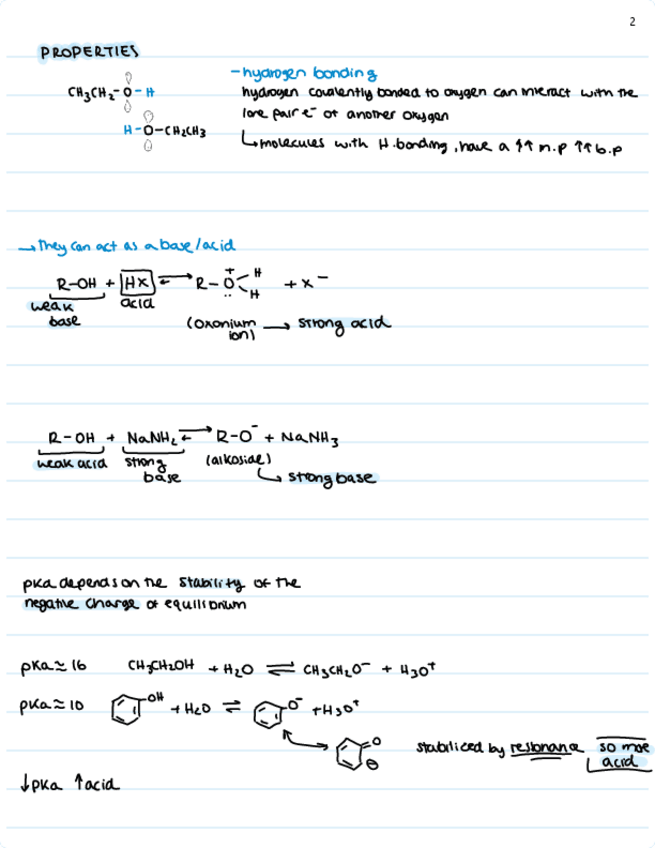 2
PROPERTIES
-hydrogen bonding
CH3CH2-O-H
hydrogen covalently bonded to oxygen can interact with the
lone pair e- of another oxygen
H-O-CH2CH3
↳molecules with H.bonding, have a ↑↑ m.p ↑↑ b.p
→They can act as a base/acid
R-OH + HX ⇌ R-O+ H H + X-
weak base
acid
(oxonium ion) → strong acid
R-OH + NaNH2 ⇌ R-O- + NaNH3
weak acid
strong base
(alkoside)
↳ strong base
pka depends on the stability of the
negative charge of equilibrium
pKa≈16 CH3CH2OH + H2O ⇌ CH3CH2O- + H3O+
pKa≈10 OH + H2O ⇌ O- + H3O+
O ⊖
stabilized by resonance so more acid
↓pKa ↑acid